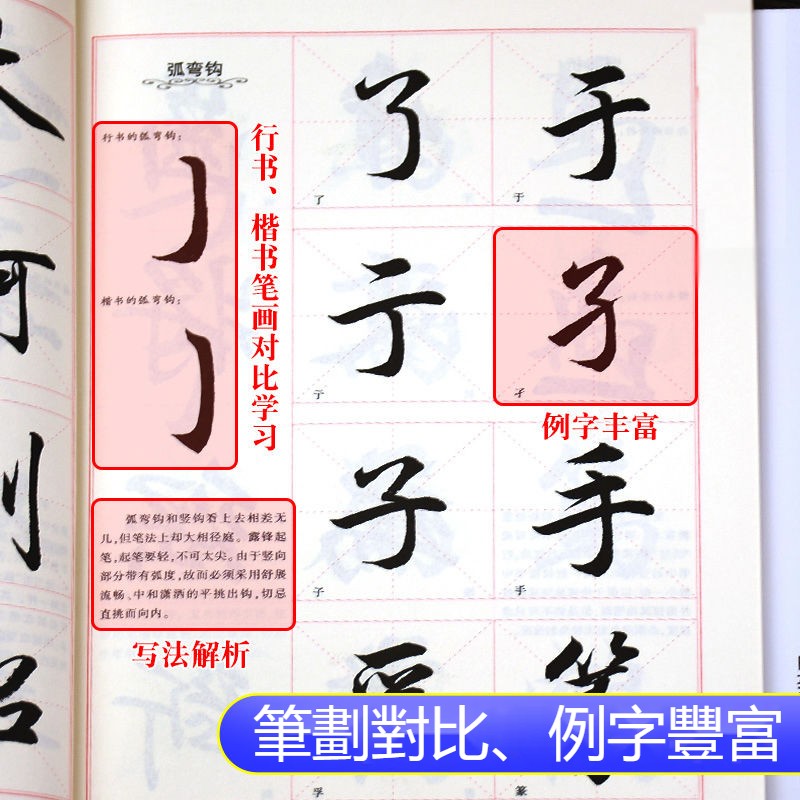 弧弯钩
行书的弧弯钩：
楷书的弧弯钩：
行书、楷书笔画对比学习
弧弯钩和竖钩看上去相差无
几，但笔法上却大相径庭。露锋起
笔，起笔要轻，不可太尖。由于竖向
部分带有弧度，故而必须采用舒展
流畅、中和潇洒的平挑出钩，切忌
直挑而向内。
写法解析
了 于
了 于
亍 孑
亍 孑
例字丰富
子 手
子 手
孚 篆
筆劃對比、例字豐富